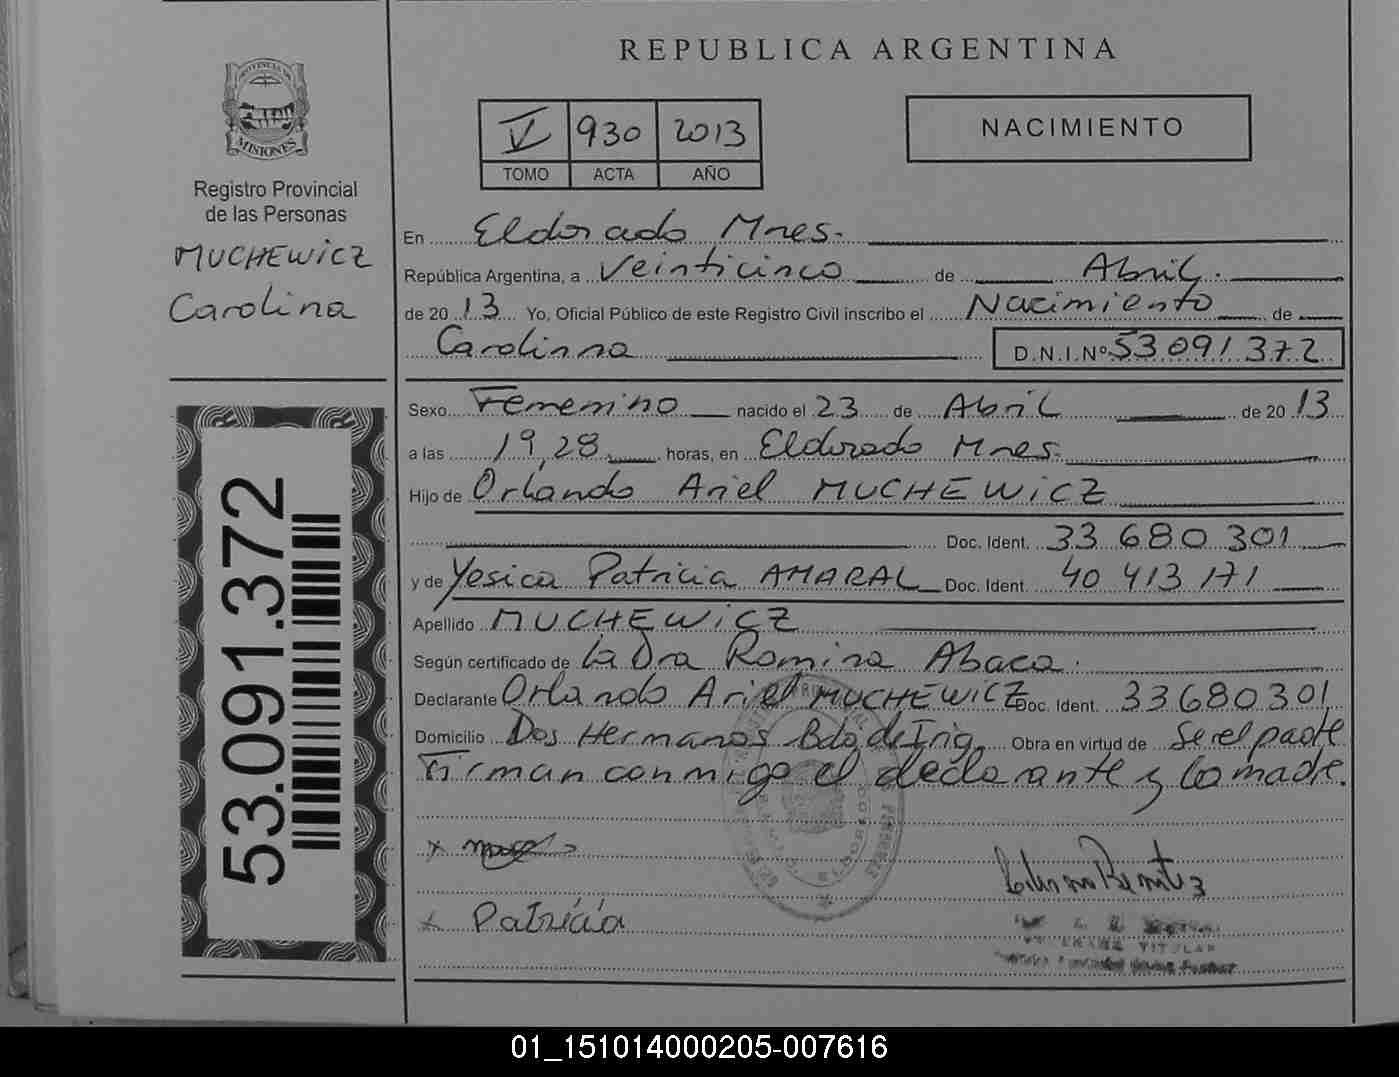 REPUBLICA ARGENTINA
PROVINCIA DE
MISIONES
Registro Provincial
de las Personas
MUCHEWICZ
Carolina
V 930 2013
TOMO ACTA AÑO
NACIMIENTO
En Eldorado Mnes.
República Argentina, a Veinticinco de Abril.
de 20 13 Yo, Oficial Público de este Registro Civil inscribo el Nacimiento de
Carolinna D.N.I.Nº 53 091 372
Sexo Femenino nacido el 23 de Abril de 20 13
a las 19,28 horas, en Eldorado Mnes.
Hijo de Orlando Ariel MUCHEWICZ
Doc. Ident. 33 680 301
y de Yesica Patricia AMARAL Doc. Ident. 40 413 171
Apellido MUCHEWICZ
Según certificado de La Dra Romina Abaca.
Declarante Orlando Ariel MUCHEWICZ Doc. Ident. 33 680 301
Domicilio Dos Hermanos Bdo de Irig. Obra en virtud de Ser el padre
Firman conmigo el declarante y la madre.
x
x Patricia
Benitez
TITULAR
53.091.372
01_151014000205-007616